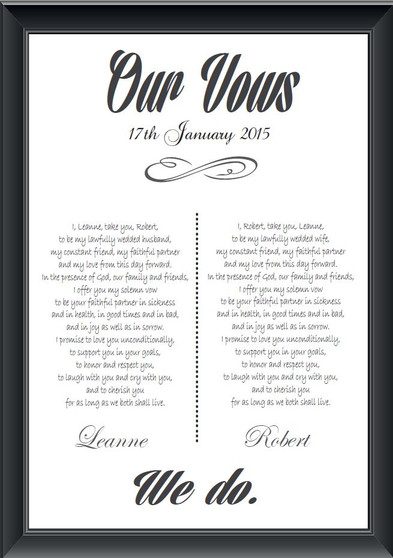 Our Vows
17th January 2015
I, Leanne, take you, Robert,
to be my lawfully wedded husband,
my constant friend, my faithful partner
and my love from this day forward.
In the presence of God, our family and friends,
I offer you my solemn vow
to be your faithful partner in sickness
and in health, in good times and in bad,
and in joy as well as in sorrow.
I promise to love you unconditionally,
to support you in your goals,
to honor and respect you,
to laugh with you and cry with you,
and to cherish you
for as long as we both shall live.
Leanne
I, Robert, take you, Leanne,
to be my lawfully wedded wife,
my constant friend, my faithful partner
and my love from this day forward.
In the presence of God, our family and friends,
I offer you my solemn vow
to be your faithful partner in sickness
and in health, in good times and in bad,
and in joy as well as in sorrow.
I promise to love you unconditionally,
to support you in your goals,
to honor and respect you,
to laugh with you and cry with you,
and to cherish you
for as long as we both shall live.
Robert
We do.